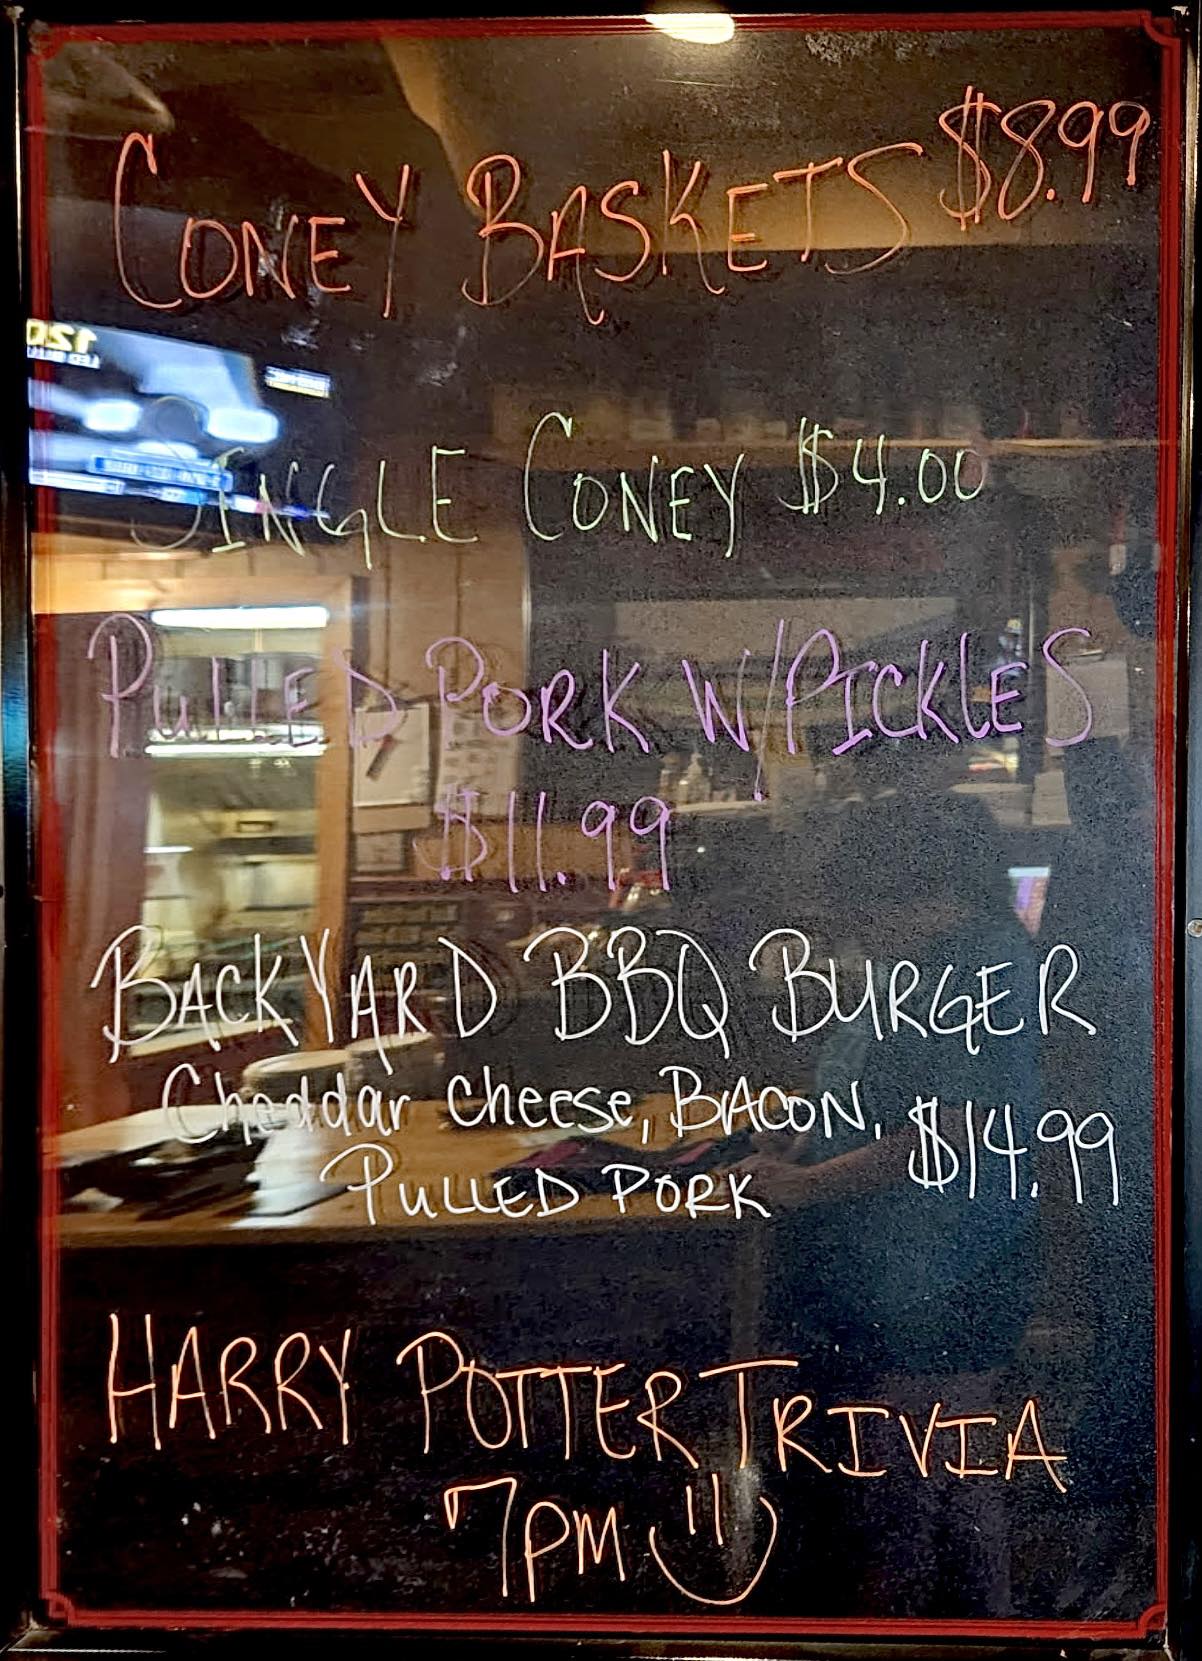 CONEY BASKETS $8.99
SINGLE CONEY $4.00
PULLED PORK W/PICKLES
$11.99
BACKYARD BBQ BURGER
Cheddar cheese, BACON,
PULLED PORK $14.99
HARRY POTTER TRIVIA
7PM